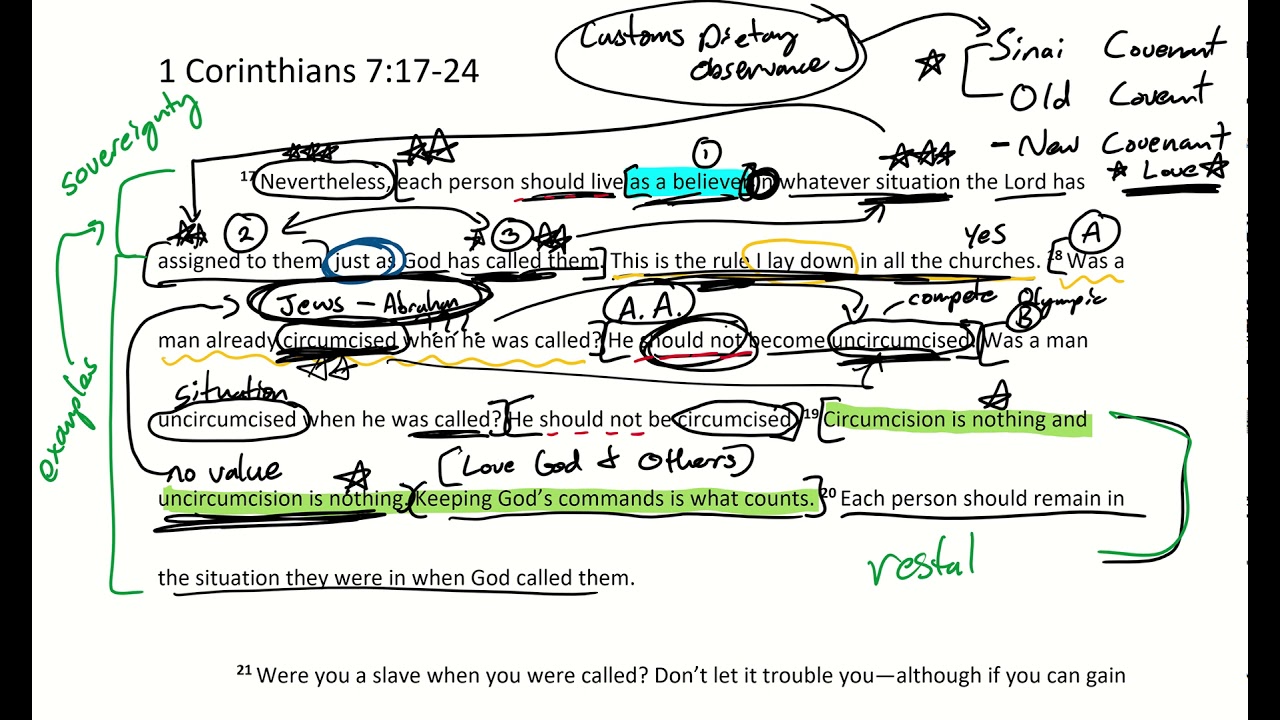 Customs Dietary
Observance
Sinai Covenant
Old Covent
- New Covenant
Love
1 Corinthians 7:17-24
sovereignty
1
17 Nevertheless, each person should live as a believer in whatever situation the Lord has
2
3
yes
A
assigned to them, just as God has called them. This is the rule I lay down in all the churches. 18 Was a
Jews - Abraham
A. A.
compete Olympic
B
man already circumcised when he was called? He should not become uncircumcised. Was a man
situation
uncircumcised when he was called? He should not be circumcised. 19 Circumcision is nothing and
examples
no value
[Love God & Others]
uncircumcision is nothing. Keeping God's commands is what counts. 20 Each person should remain in
restal
the situation they were in when God called them.
21 Were you a slave when you were called? Don't let it trouble you—although if you can gain